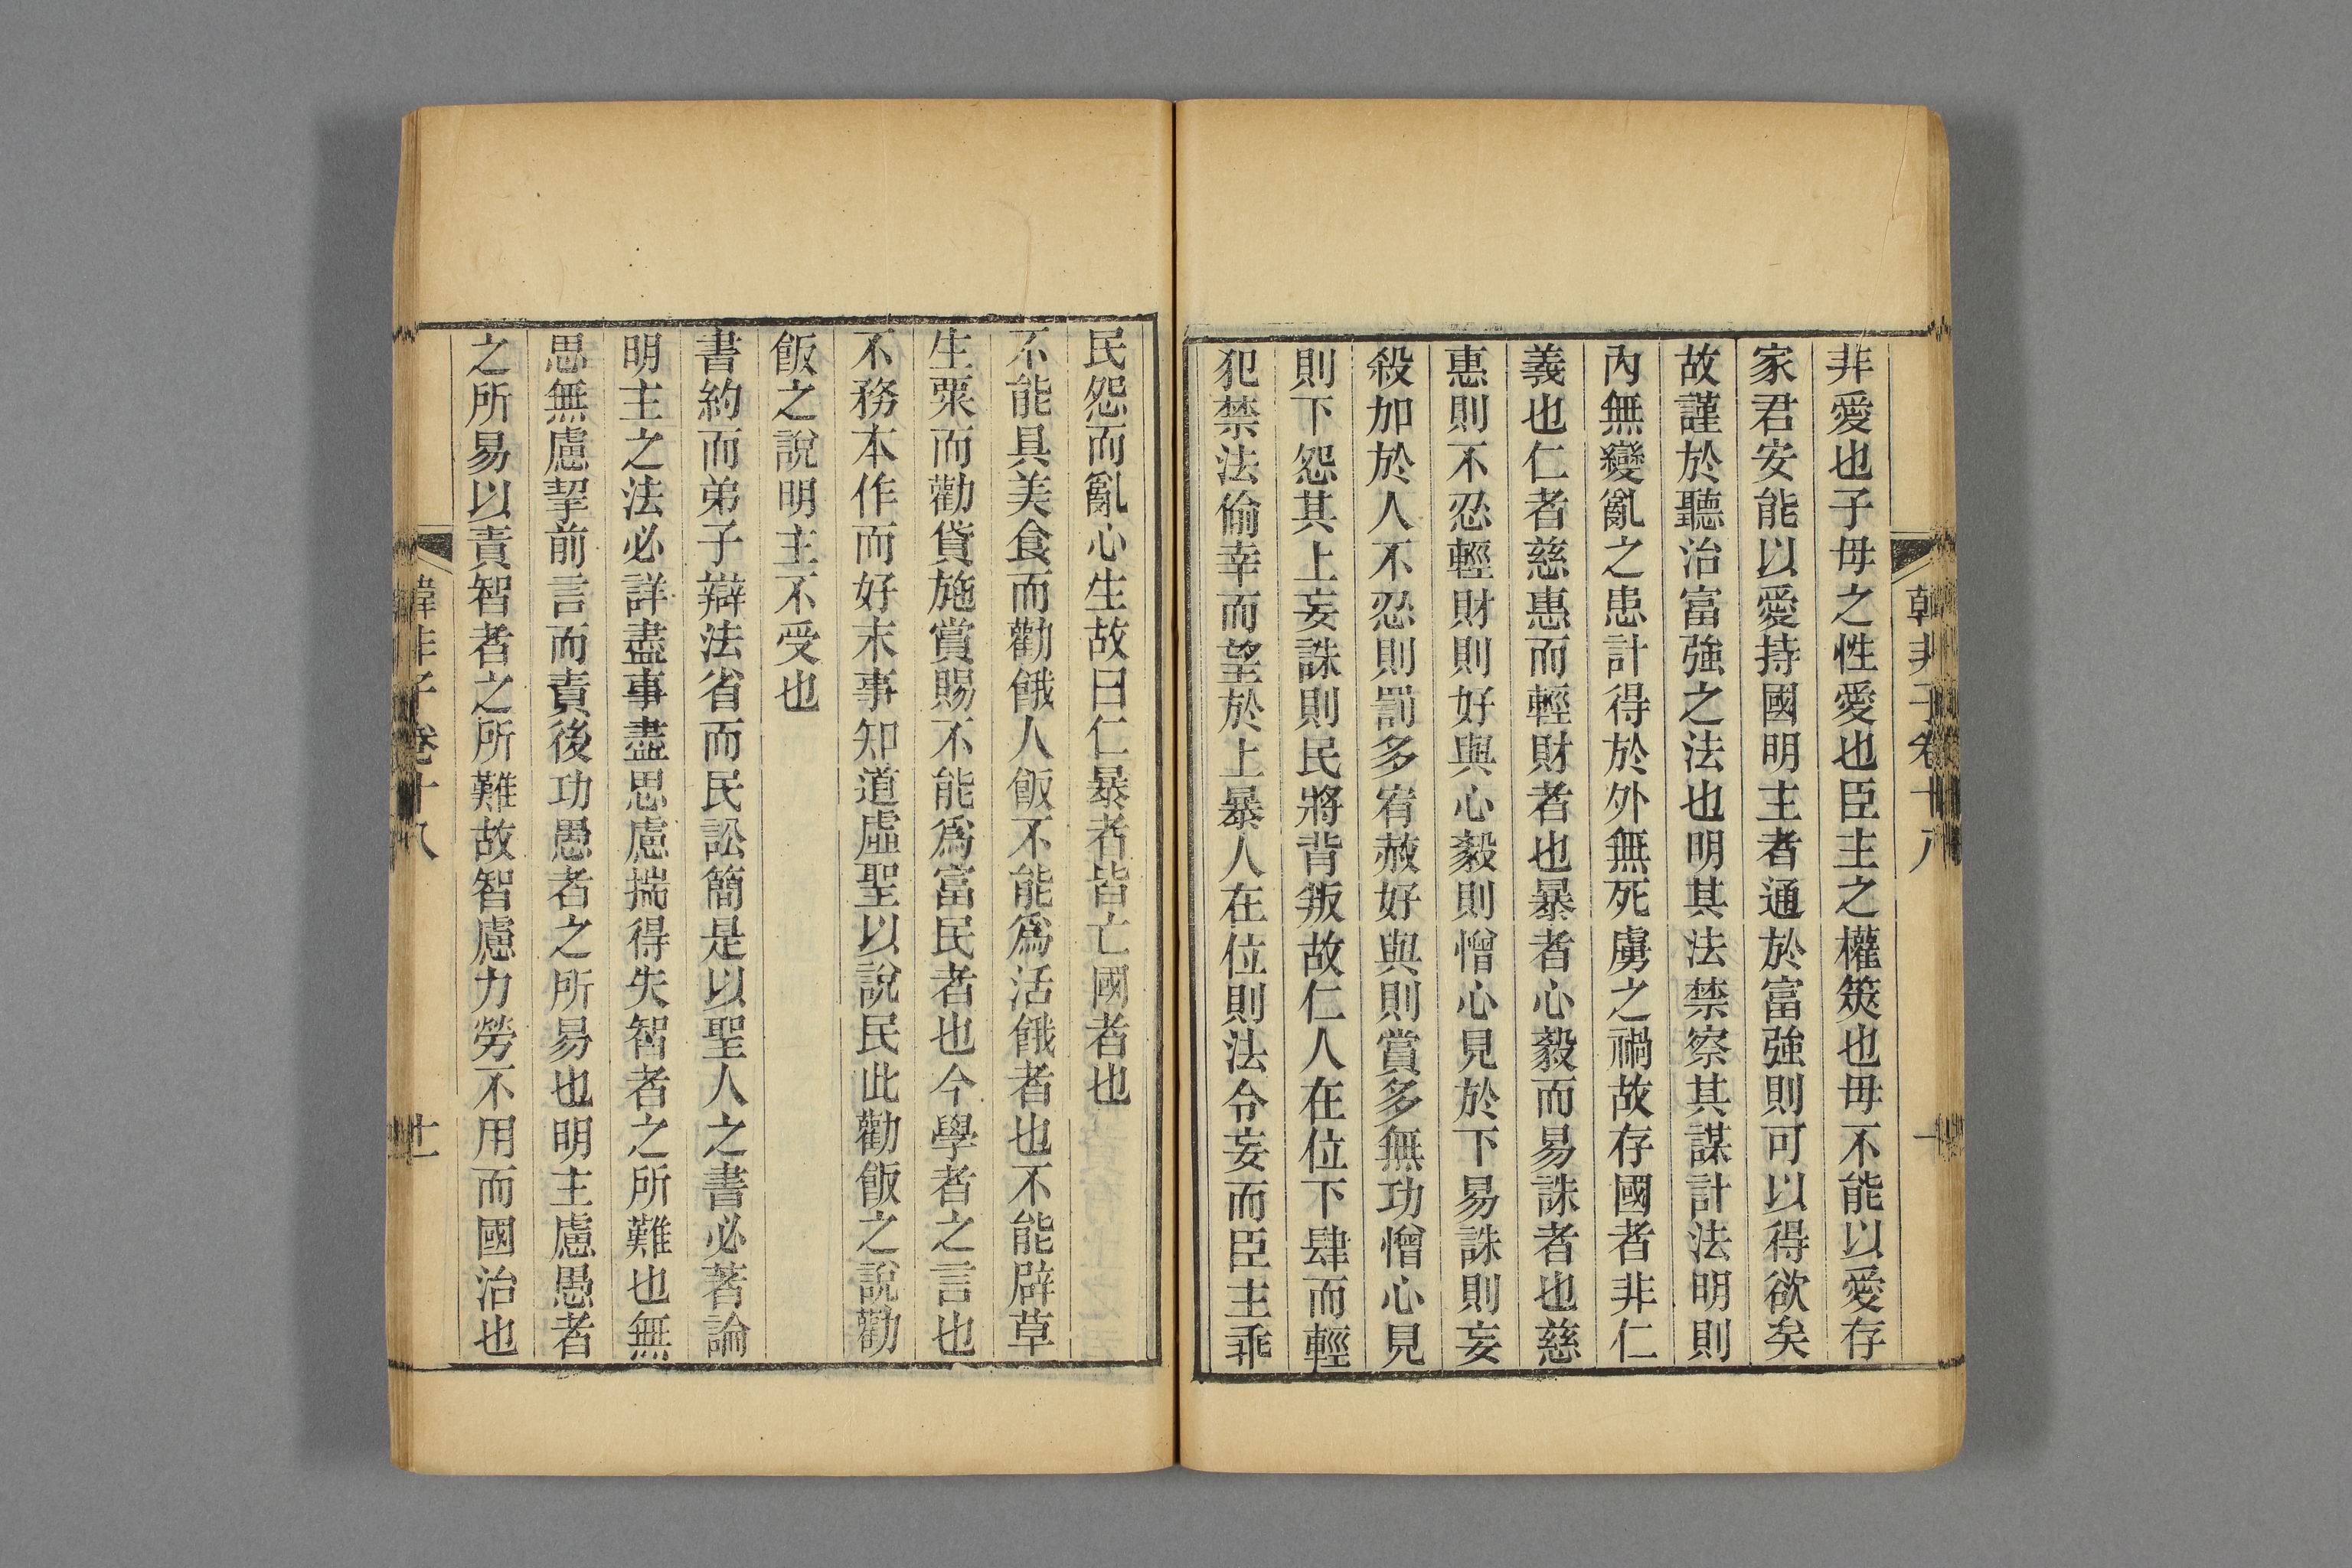 非愛也子毋之性愛也臣主之權筴也毋不能以愛存
家君安能以愛持國明主者通於富強則可以得欲矣
故謹於聽治富強之法也明其法禁察其謀計法明則
內無變亂之患計得於外無死虜之禍故存國者非仁
義也仁者慈惠而輕財者也暴者心毅而易誅者也慈
惠則不忍輕財則好與心毅則憎心見於下易誅則妄
殺加於人不忍則罰多宥赦好與則賞多無功憎心見
則下怨其上妄誅則民將背叛故仁人在位下肆而輕
犯禁法偷幸而望於上暴人在位則法令妄而臣主乖
民怨而亂心生故曰仁暴者皆亡國者也
不能具美食而勸餓人飯不能爲活餓者也不能辟草
生粟而勸貸施賞賜不能爲富民者也今學者之言也
不務本作而好末事知道虛聖以說民此勸飯之說勸
飯之說明主不受也
書約而弟子辯法省而民訟簡是以聖人之書必著論
明主之法必詳盡事盡思慮揣得失智者之所難也無
思無慮挈前言而責後功愚者之所易也明主慮愚者
之所易以責智者之所難故智慮力勞不用而國治也
韓非子卷十八